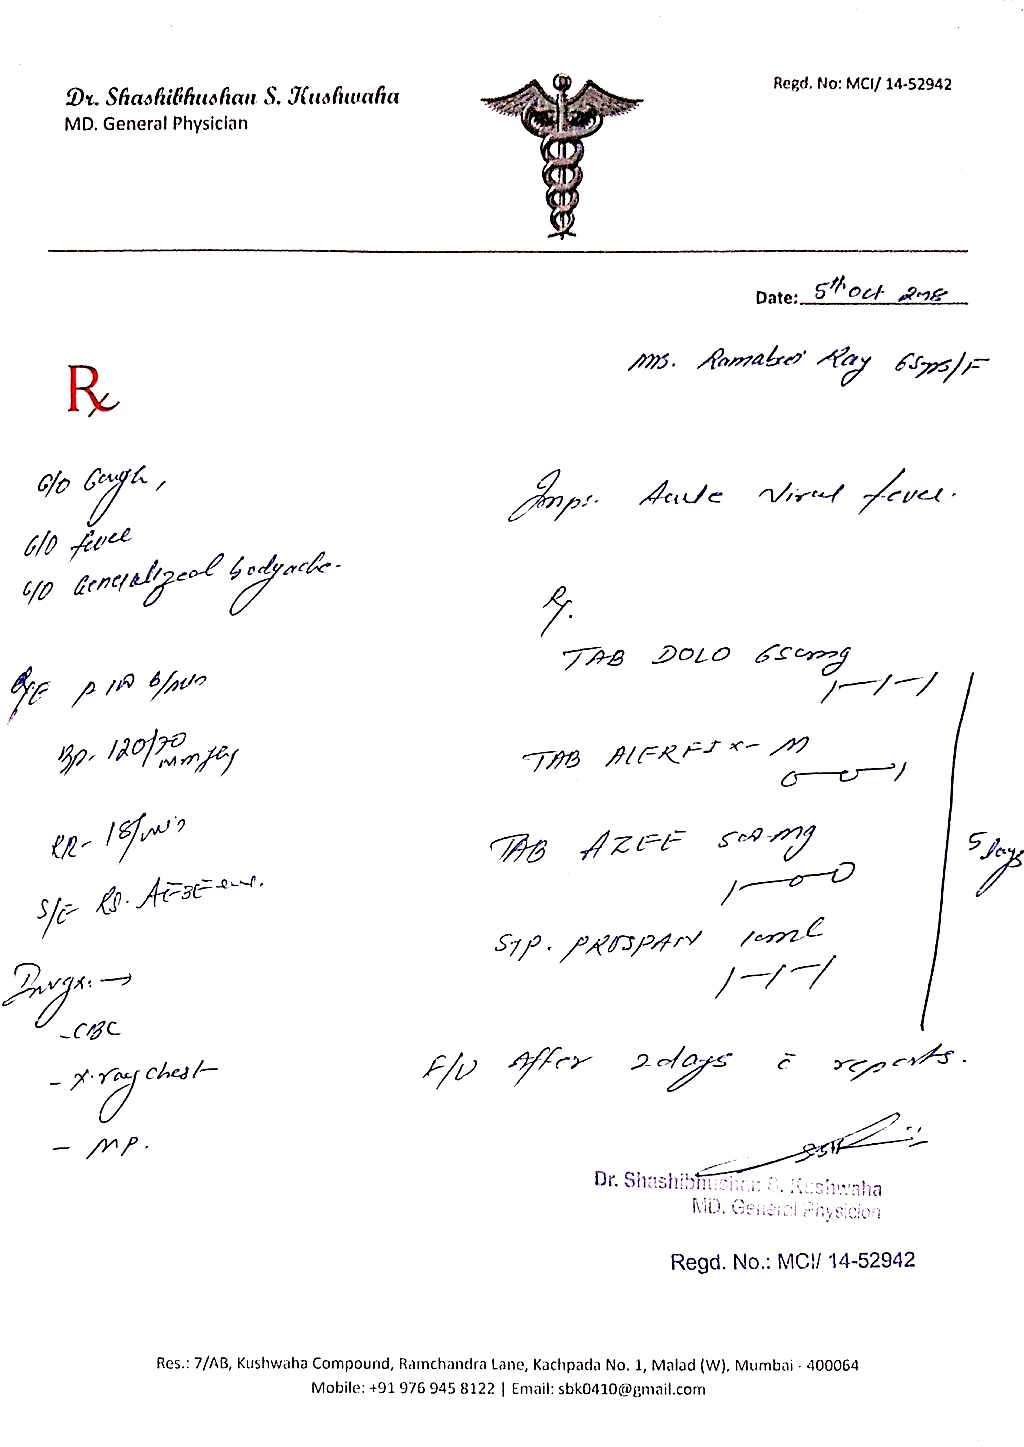 Dr. Shashibhushan S. Kushwaha
MD. General Physician
Regd. No: MCI/ 14-52942
Date: 5th Oct
Ms. Ray /F
Rx
C/O Cough,
C/O fever
C/O Generalized bodyache.
O/E P /min
BP. 120/70
mmHg
RR- 18/min
S/E RS. AEBE
Invgx. →
- CBC
- X-ray chest
- MP.
Imps. Acute Viral fever.
Rx.
TAB DOLO 650mg
1-1-1
TAB ALERFIX-M
0-0-1
TAB AZEE 500mg
1-0-0
SYP. PROSPAN 10ml
1-1-1
5 days
F/U After 2 days c̄ reports.
Dr. Shashibhushan S. Kushwaha
MD. General Physician
Regd. No.: MCI/ 14-52942
Res.: 7/AB, Kushwaha Compound, Ramchandra Lane, Kachpada No. 1, Malad (W), Mumbai - 400064
Mobile: +91 976 945 8122 | Email: sbk0410@gmail.com